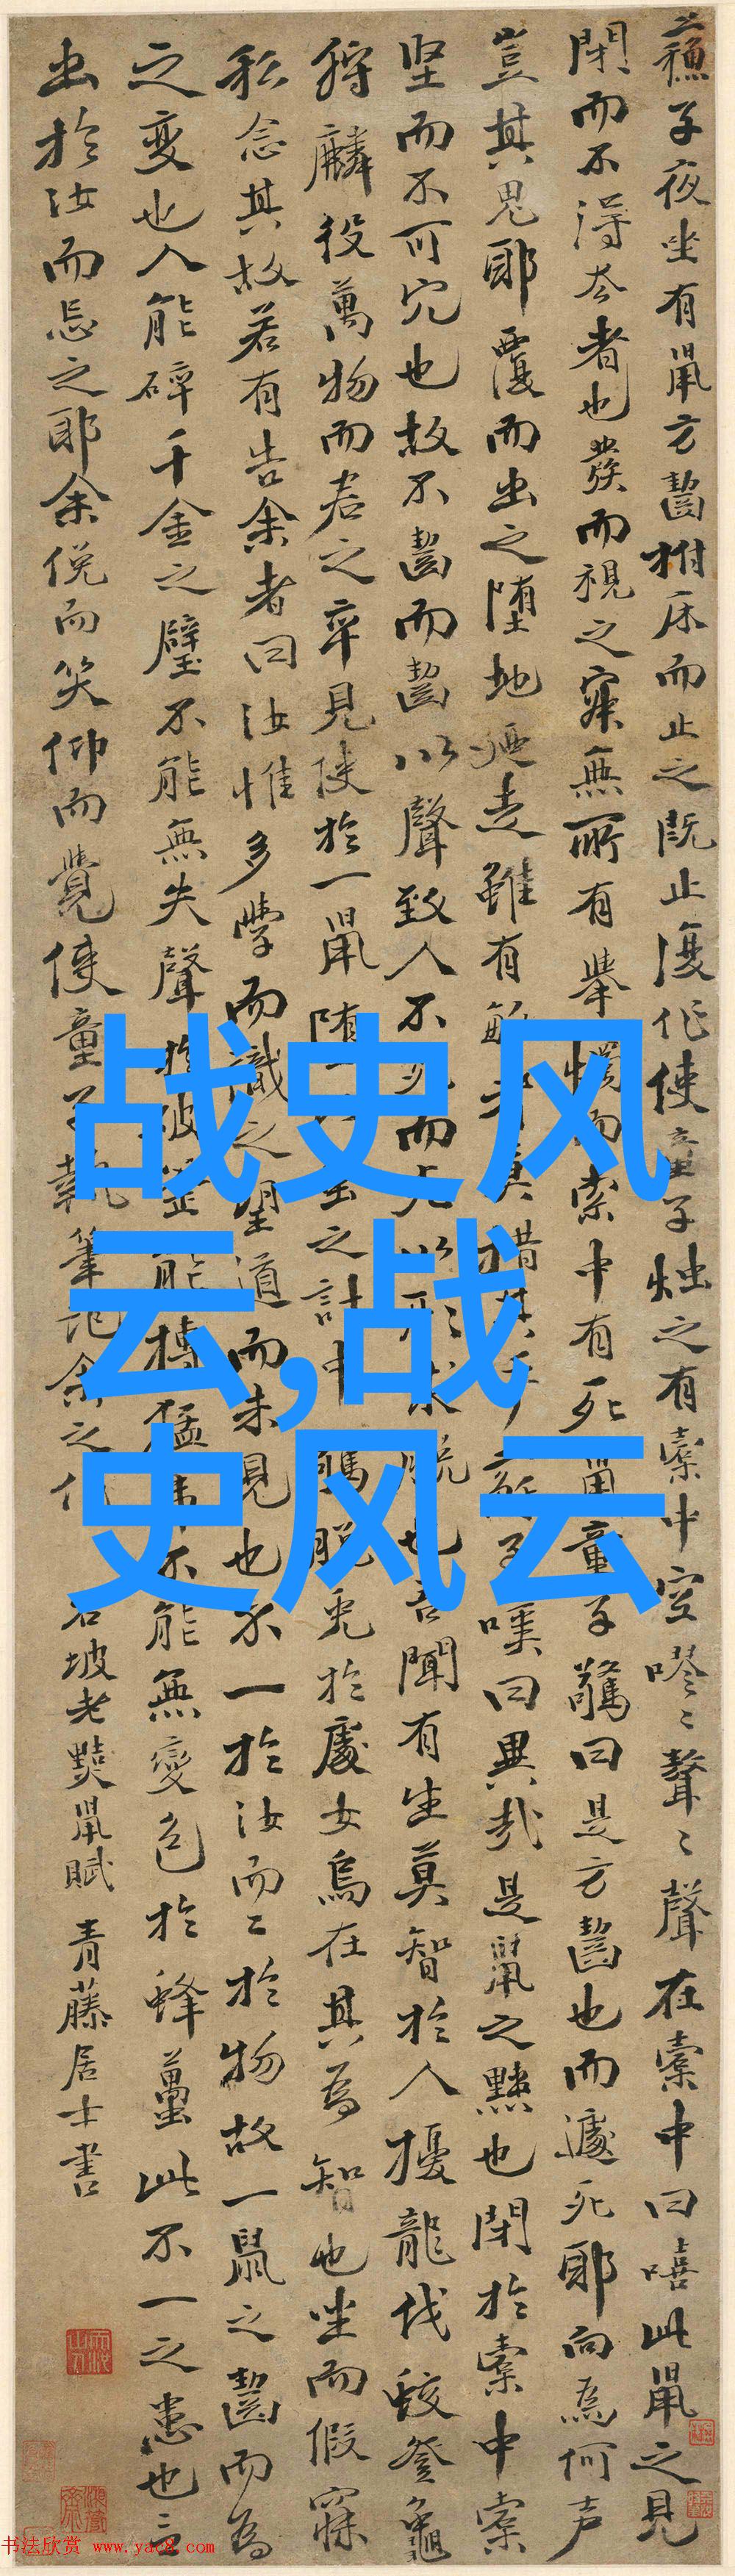 蘓子夜坐有鼠方齧拊床而止之既止復作使童子燭之有橐中空嘐〻聱〻聲在橐中曰嘻此鼠之見
閉而不得去者也發而視之寂無所有舉燭而索中有死鼠童子驚曰是方齧也而遽死耶向為何声
豈其鬼耶覆而出之墮地廼走雖有敏者莫措其手蘓子嘆曰異哉是鼠之黠也閉於橐中橐
坚而不可穴也故不齧而齧以聲致人不死而死以形求脱也吾聞有生莫智於人擾龍伐蛟登龜
狩麟役萬物而君之卒見使於一鼠墮此蟲之計中驚脱兔於處女烏在其為智也坐而假寐
私念其故若有告余者曰汝惟多學而識之望道而未見也不一於汝而二於物故一鼠之齧而為
之变也人能碎千金之璧不能無失聲於破釜能搏猛虎不能無變色於蜂蠆此不一之患也言
出於汝而忘之耶余俛而笑仰而覺使童子執筆記余之作 右坡老黠鼠賦 青藤居士書
战史风
云,战
史风云
书法欣赏 www.yac8.com